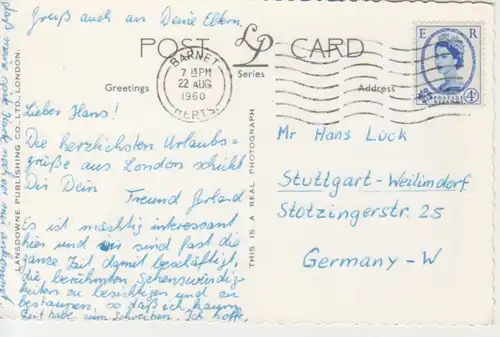 Gruß auch an Deine Eltern.
POST CARD
LP
Series
Greetings
Address
BARNET
7 15 PM
22 AUG
1960
HERTS.
E R
POSTAGE
4D
Lieber Hans!
Die herzlichsten Urlaubs-
grüße aus London schickt
Dir Dein
Freund Gerhard
Es ist mächtig interessant
hier und wir sind fast die
ganze Zeit damit beschäftigt,
die berühmten Sehenswürdig-
keiten zu besichtigen und zu
bestaunen, so daß ich kaum
Zeit habe zum Schreiben. Ich hoffe,
daß meine
LANSDOWNE PUBLISHING CO., LTD., LONDON.
THIS IS A REAL PHOTOGRAPH
Mr Hans Luck
Stuttgart-Weilimdorf
Stotzingerstr. 25
Germany-W